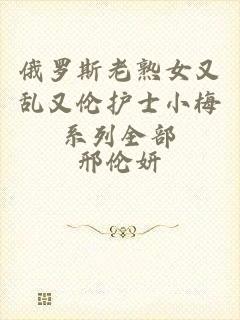 俄罗斯老熟女又
乱又伦护士小梅
系列全部
邢伦妍